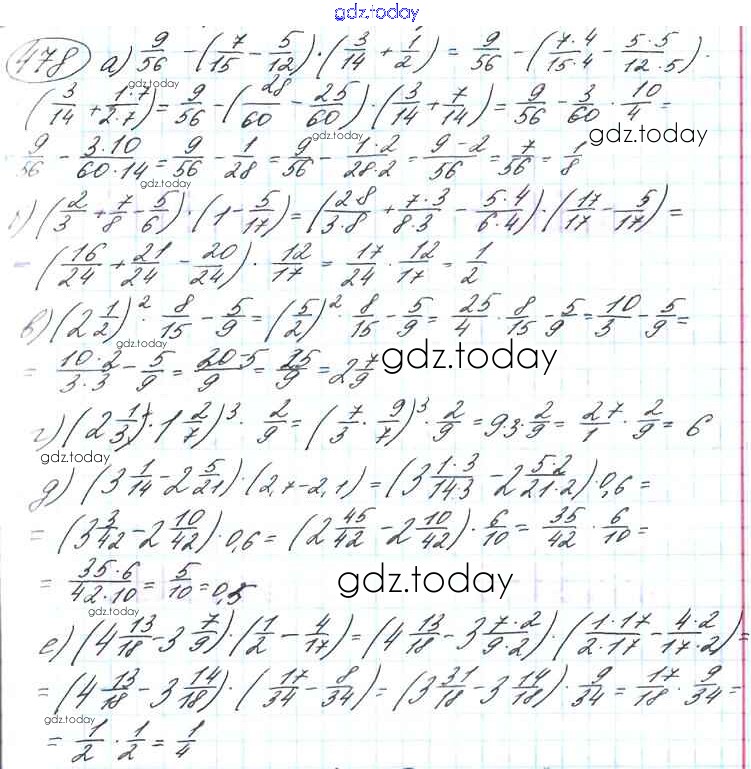 gdz.today
478 а) 9/56 - (7/15 - 5/12) · (3/14 + 1/2) = 9/56 - (7·4/15·4 - 5·5/12·5) ·
gdz.today
(3/14 + 1·7/2·7) = 9/56 - (28/60 - 25/60) · (3/14 + 7/14) = 9/56 - 3/60 · 10/4 =
gdz.today
gdz.today
9/56 - 3·10/60·14 = 9/56 - 1/28 = 9/56 - 1·2/28·2 = 9-2/56 = 7/56 = 1/8
gdz.today
(2/3 + 7/8 - 5/6) · (1 - 5/17) = (2·8/3·8 + 7·3/8·3 - 5·4/6·4) · (17/17 - 5/17) =
(16/24 + 21/24 - 20/24) · 12/17 = 17/24 · 12/17 = 1/2
в) (2 1/2)² · 8/15 - 5/9 = (5/2)² · 8/15 - 5/9 = 25/4 · 8/15 - 5/9 = 10/3 - 5/9 =
gdz.today
= 10·2/3·3 - 5/9 = 20-5/9 = 25/9 = 2 7/9
gdz.today
г) (2 1/3 · 1 2/7)³ · 2/9 = (7/3 · 9/7)³ · 2/9 = 9·3 · 2/9 = 27/1 · 2/9 = 6
gdz.today
д) (3 1/14 - 2 5/21) · (2,7 - 2,1) = (3 1·3/14·3 - 2 5·2/21·2) · 0,6 =
= (3 3/42 - 2 10/42) · 0,6 = (2 45/42 - 2 10/42) · 6/10 = 35/42 · 6/10 =
= 35·6/42·10 = 5/10 = 0,5
gdz.today
gdz.today
е) (4 13/18 - 3 7/9) · (1/2 - 4/17) = (4 13/18 - 3 7·2/9·2) · (1·17/2·17 - 4·2/17·2) =
= (4 13/18 - 3 14/18) · (17/34 - 8/34) = (3 31/18 - 3 14/18) · 9/34 = 17/18 · 9/34 =
gdz.today
= 1/2 · 1/2 = 1/4